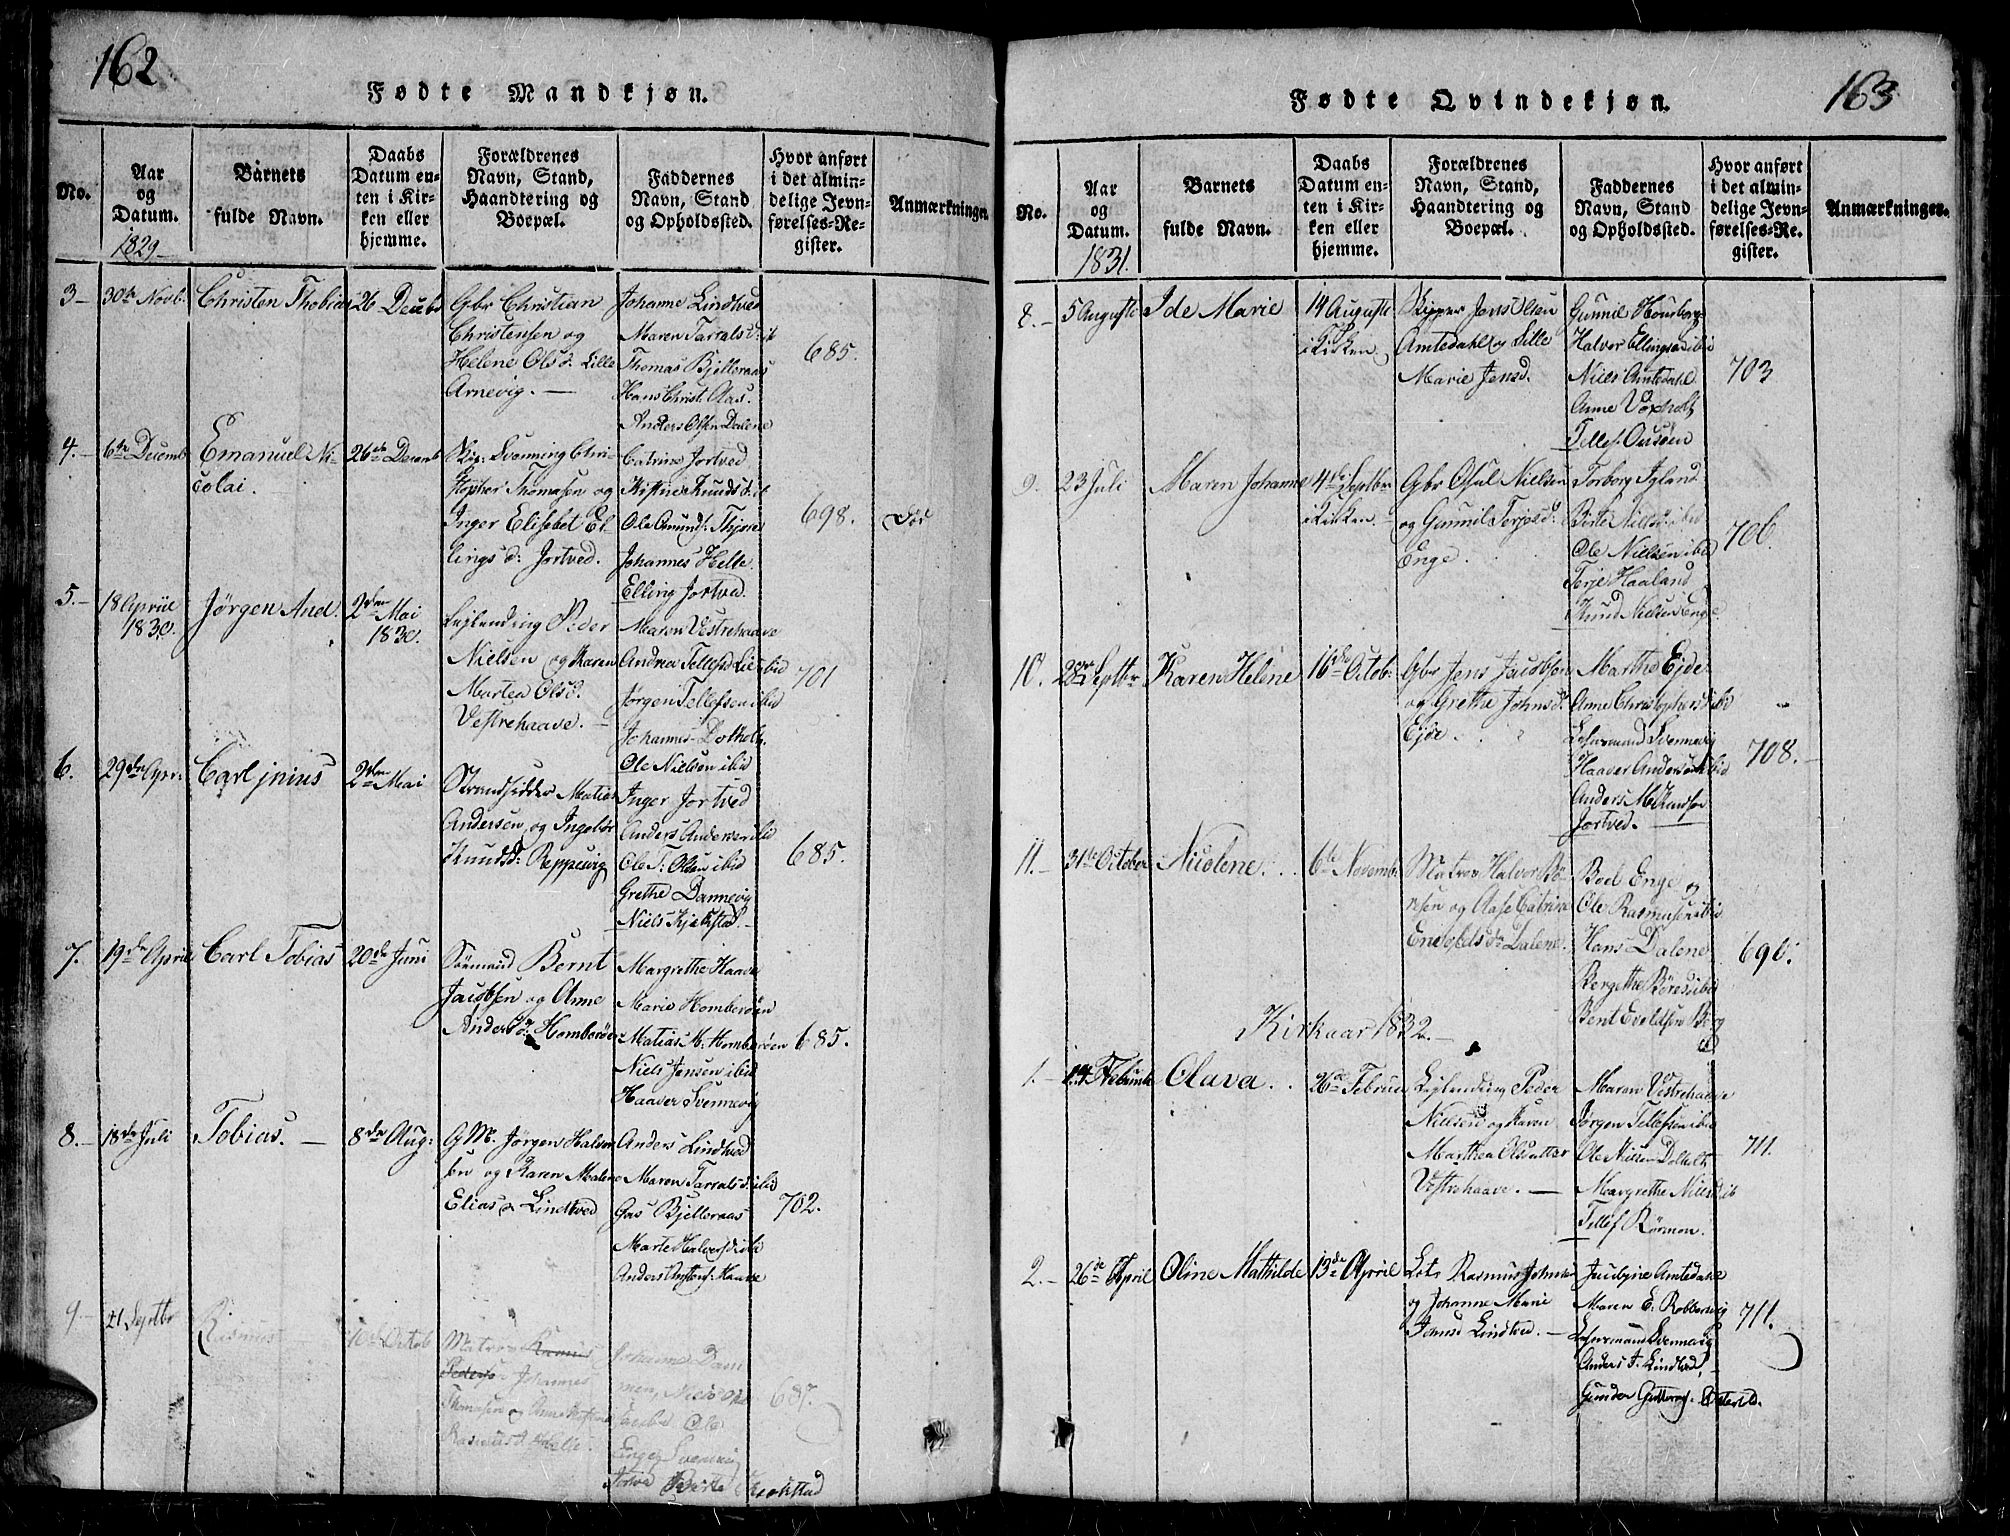 162
Fødte Mandkjøn.
No.
Aar og Datum.
1829
Barnets fulde Navn.
Daabs Datum enten i Kirken eller hjemme.
Forældrenes Navn, Stand, Haandtering og Boepæl.
Faddernes Navn, Stand og Opholdssted.
Hvor anført i det almindelige Jevnførelses-Register.
Anmærkninger.
3 -
30te Novb.
Christen Thobias
26 Decbr
Gbr Christian
Christensen og
Helene Olsd. Lille
Arnevig. -
Johanne Lindtved
Maren Tarralsd. ib
Thomas Bjelleraas
Hans Christ. Aas.
Anders Olsen Dalene
685.
4. -
6te Decemb
Emanuel Ni-
colai.
26de Decemb
Skip: Svenning Chri-
stopher Thomasen og
Inger Elisebet El-
lings d: Jortved.
Catrine Jortved
Kistine Knudsd. ib
Ole Omunds.
Johannes Helle.
Elling Jortved.
698.
Død
5. -
18 April
1830.
Jørgen And.
2den Mai
1830.
Lejlending Peder
Nielsen og Karen
Martea Olsd.
Vestrehaave. -
Maren Vestrehaave
Andrea Tellefsd. ibid
Jørgen Tellefsen ibid
Johannes Dolholt.
Ole Nielsen ibid
701
6.
29de Apr:
Carl jnius
2den Mai
Strandsidder Matias
Andersen og Ingebor
Knudsd: Reppevig
Inger Jortved
Anders Andersen ibid
Ole T: Olsen ibid
Grethe Dannevig
Niels Kjekstad. -
685.
7.
19de April
Carl Tobias
20de Juni
Sømand Bernt
Jacobsen og Anne
Anders d: Homborøen
Margrethe Haave
Marie Homborøen
Matias M. Homborøen
Niels Jensen ibid
Haaver Svennevig
685.
8. -
18de Juli
Tobias. -
8de Aug:
G.M. Jørgen Halvor-
sen og Karen Malene
Elias d. Lindtved
Anders Lindtved
Maren Tarralsd. ibid
Gas Bjelleraas
Marte Halvorsd. ibi
Anders Haave
702.
9 -
21 Septbr
Rasmus
10de Octob
Matros Rasmus
Peders Johannes
Thomasen og Anne
Rasmusd. Helle.
Johanne Dam
men, Niels
Ole
Enge, Svenning
Birte Krokstad
687.
163
Fødte Qvindekjøn.
No.
Aar og Datum.
1831.
Barnets fulde Navn.
Daabs Datum enten i Kirken eller hjemme.
Forældrenes Navn, Stand, Haandtering og Boepæl.
Faddernes Navn, Stand og Opholdssted.
Hvor anført i det almindelige Jevnførelses-Register.
Anmærkninger.
8. -
5 Auguste
Ide Marie
14 Auguste
i Kirken
Skipper Jens Olsen
Amtedahl og Lille
Marie Jensd.
Gunnil Homborg
Halvor Ellingsen ibi
Niels Amtedahl
Anne Voxholt
Tellef Ousøen
703
9.
23 Juli
Maren Johanne
4de Septbr
i Kirken. -
Gbr Osul Nielsen
og Gunnil Terjes d:
Enge.
Torborg Igland
Birte Nielsd. ibid
Ole Nielsen ibid
Terje Haaland
Knud Nielsen Enge
706.
10.
28de Septbr
Karen Helene
16de Octob:
Gbr Jens Jacobsen
og Grethe Johnsd.
Ejde.
Marthe Ejde
Anne Christophersd. ibid
Svennevig
Haaver Andersen ibid
Anders M. Knudsen
Jortved. -
708. -
11. -
31te October
Nicolene. . .
6te Novemb.
Matros Halvor Bø-
rresen og Aase Catrine
Enevolds dr Dalene.
Boel Enge og
Ole Rasmusen ibid
Hans Dalene
Bergethe Børesd. ibid
Bent Evoldsen Berg
690.
Kirkaar 1832. -
1. -
14 Februar
Olava. . .
26de Februar
Lejlending Peder
Nielsen og Karen
Marthea Olsdatter
Vestrehaave. -
Maren Vestrehaave
Jørgen Tellefsen ibid
Ole Nielsen Dolholt
Margrethe Nielsd. ib
Tellef Rørmon.
711.
2. -
26de April
Oline Mathilde
13de April
Lots Rasmus Johnsen
og Johanne Marie
Jensd Lindtved. -
Jacobine Amtedahl
Maren E. Robbersvig
Svennevig
Anders J. Lindtved
Gunder
711.